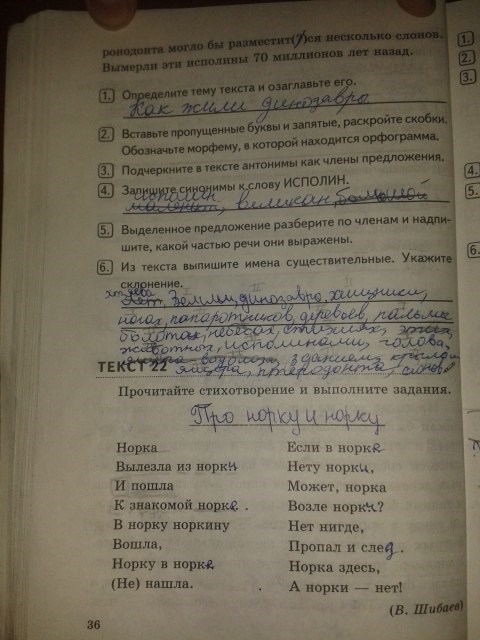 ронодонта могло бы разместит(?)ся несколько слонов.
Вымерли эти исполины 70 миллионов лет назад.
1. Определите тему текста и озаглавьте его.
Как жили динозавро
2. Вставьте пропущенные буквы и запятые, раскройте скобки.
Обозначьте морфему, в которой находится орфограмма.
3. Подчеркните в тексте антонимы как члены предложения.
4. Запишите синонимы к слову ИСПОЛИН.
исполин
великан,
5. Выделенное предложение разберите по членам и надпи-
шите, какой частью речи они выражены.
6. Из текста выпишите имена существительные. Укажите
склонение.
Земли, динозавро, хищники,
ногах, папоротников, деревьев, пальмы
болотах, небесах, стихиях,
животных, исполинами, голова,
зданием, крыльям
ТЕКСТ 22
ящера, птеродонта, слонов
Прочитайте стихотворение и выполните задания.
Про норку и норку
Норка
Вылезла из норки
И пошла
К знакомой норке.
В норку норкину
Вошла,
Норку в норке
(Не) нашла.
Если в норке
Нету норки,
Может, норка
Возле норки?
Нет нигде,
Пропал и след.
Норка здесь,
А норки — нет!
(В. Шибаев)
36
1.
2.
3.
4.
5.
6.